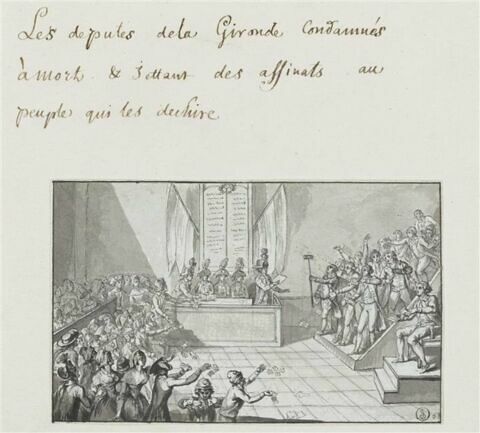 Les deputes dela Gironde Condamnés
à mort & Jettant des assinats au
peuple qui les dechire